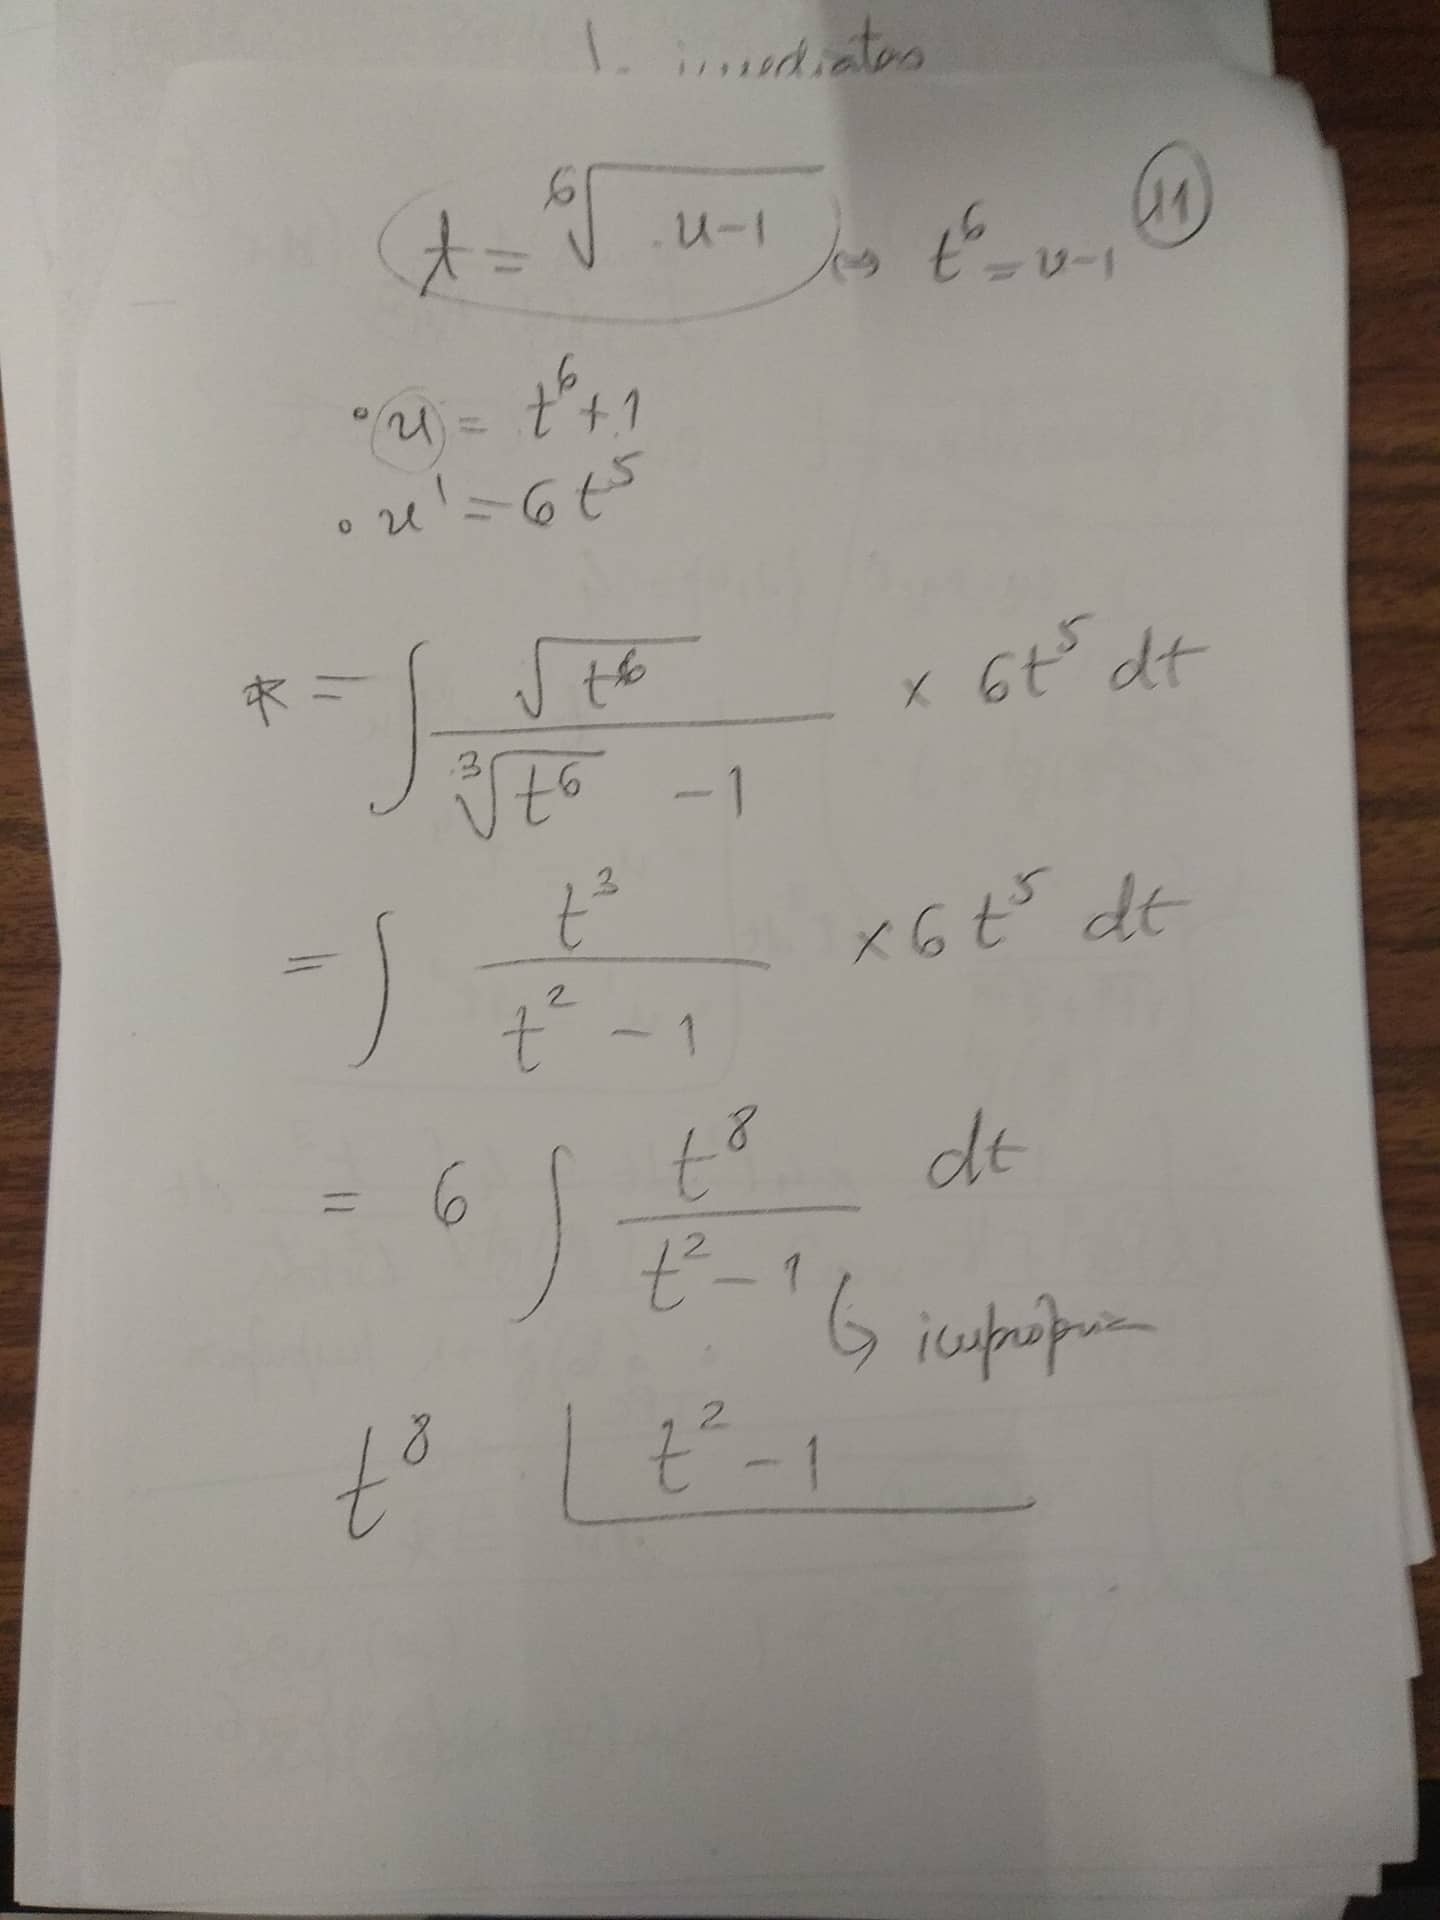 1. imediatas
t = ⁶√(u-1) ⇔ t⁶ = u-1 11
• u = t⁶ + 1
• u' = 6t⁵
* = ∫ √(t⁶) / (³√(t⁶) - 1) × 6t⁵ dt
= ∫ t³ / (t² - 1) × 6t⁵ dt
= 6 ∫ t⁸ / (t² - 1) dt
↳ imprópria
t⁸ | t² - 1